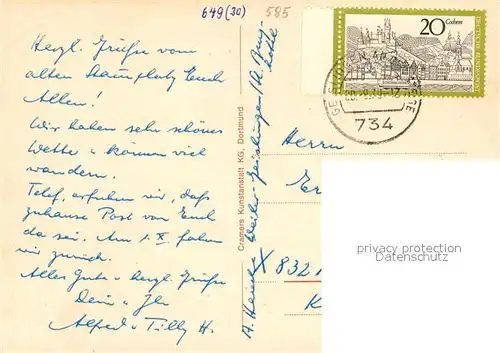 649 (30) 585
Herzl. Grüße vom
alten Stammplatz Euch
Allen!
Wir haben sehr schönes
Wetter u. können viel
wandern.
Telef. erfuhren wir, daß
zuhause Post von Euch
da sei. Am 1. X. fahren
wir zurück.
Alles Gute u. herzl. Grüße
Dein u. Ihr
Alfred u. Tilly H.
Cramers Kunstanstalt KG, Dortmund
Weiler Geislingen
20 Cochem
DEUTSCHE BUNDESPOST
734
Herrn
X 832
privacy protection
Datenschutz